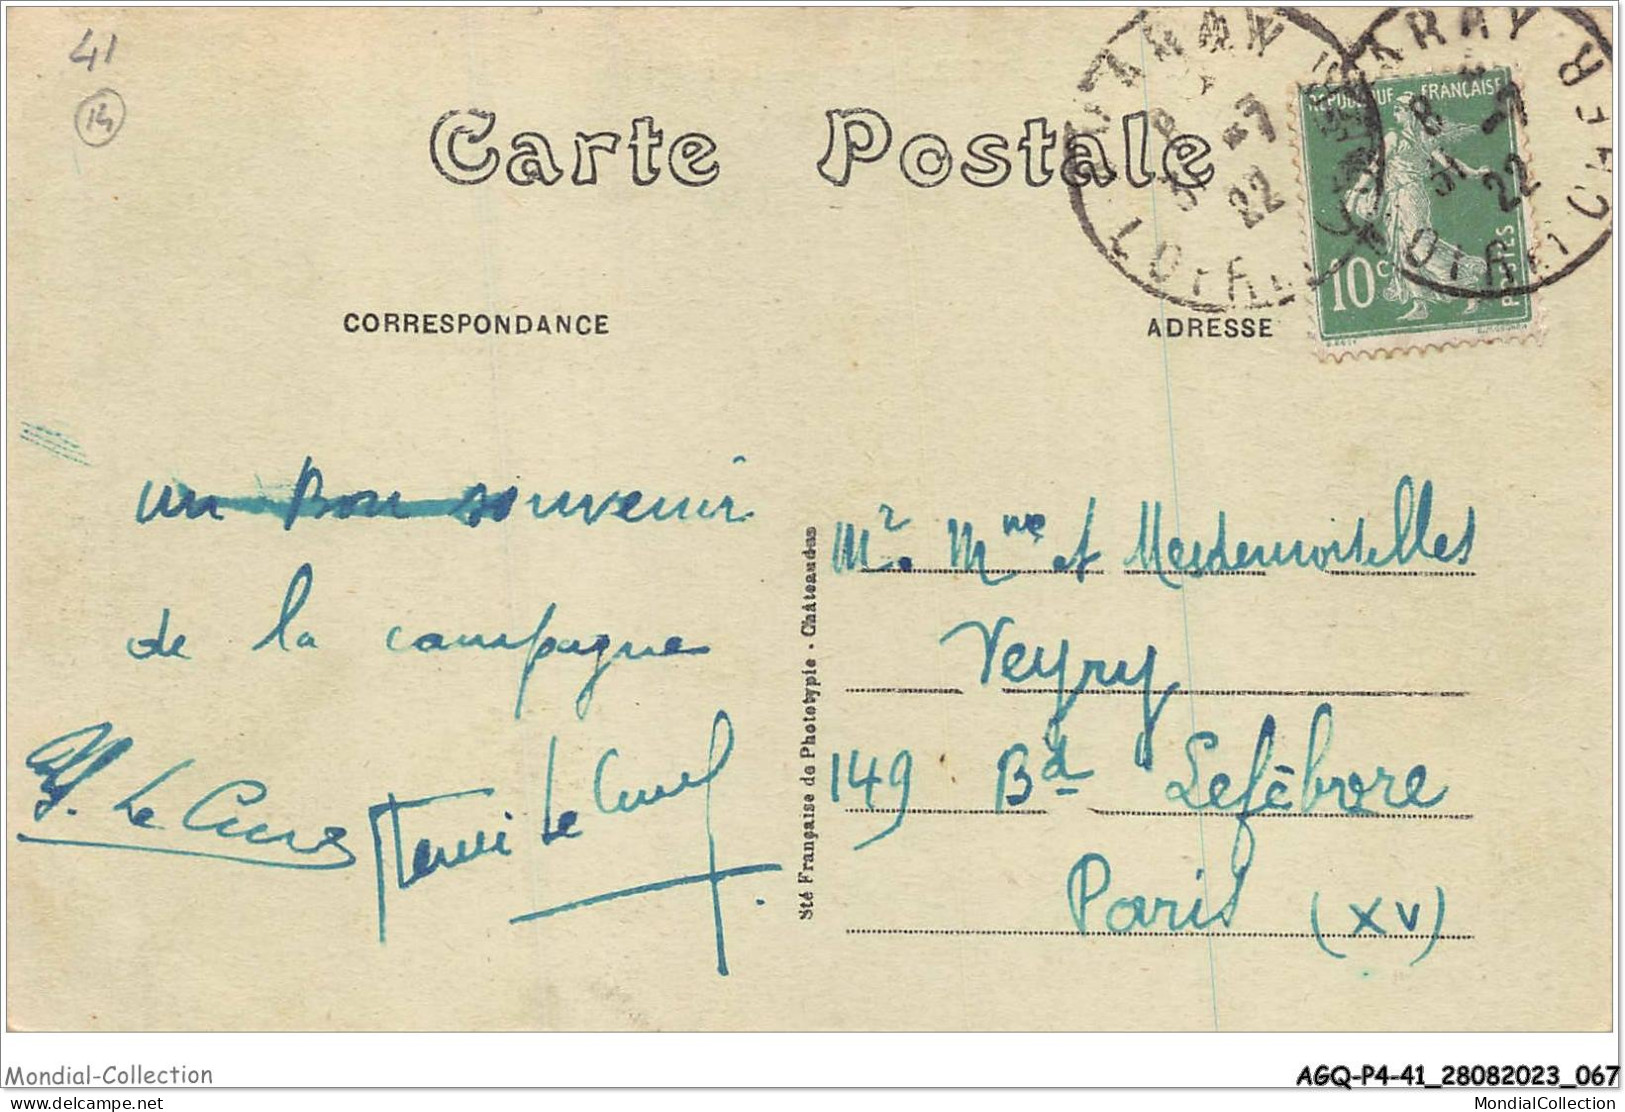 41
14
Carte Postale
RÉPUBLIQUE FRANÇAISE
10c
POSTES
22
22
LOIR-ET-CHER
CORRESPONDANCE
ADRESSE
un Bon souvenir
de la campagne
Le
Le
Sté Française de Phototypie - Châteaudun
Mr. Mme et Mesdemoiselles
Veyry
149 Bd Lefèbvre
Paris (XV)
Mondial-Collection
AGQ-P4-41_28082023_067
delcampe.net
MondialCollection